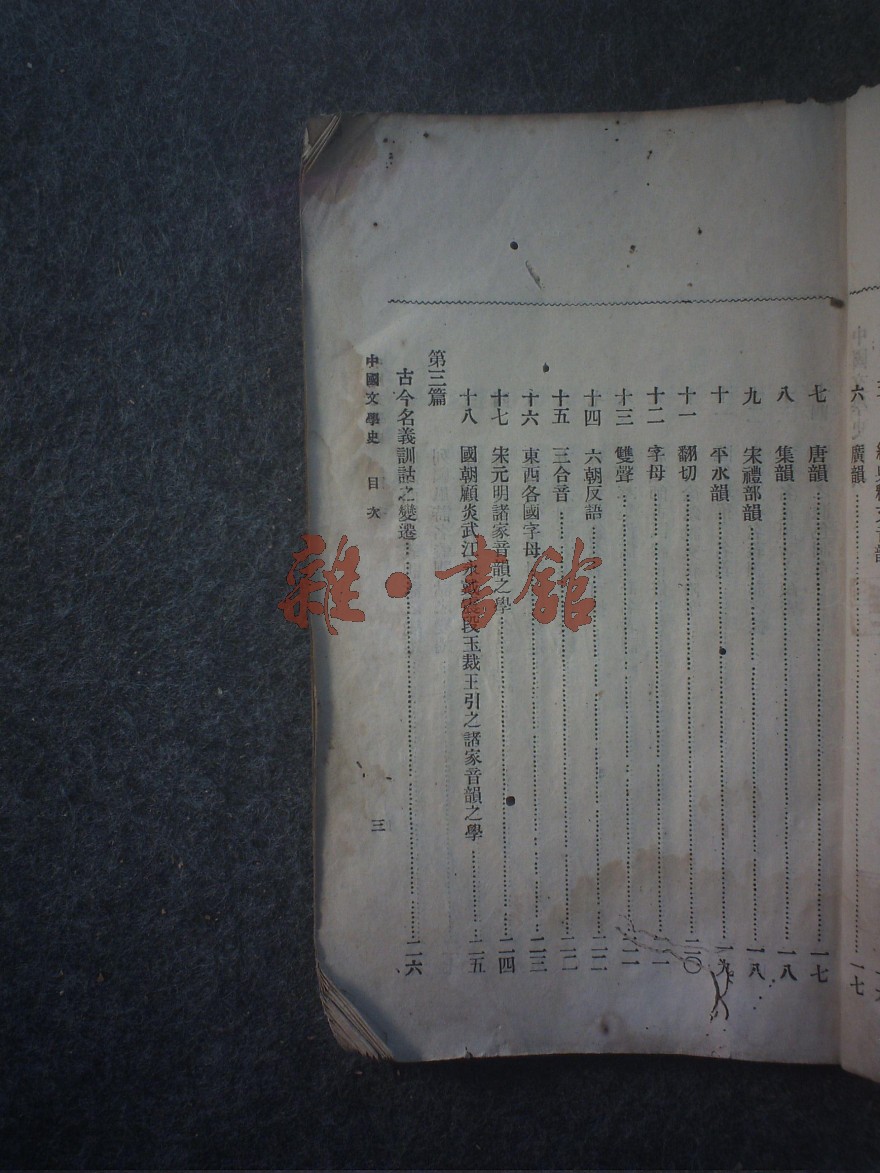 六　廣韻……一七
七　唐韻……一七
八　集韻……一八
九　宋禮部韻……一八
十　平水韻……一九
十一　翻切……二〇
十二　字母……二一
十三　雙聲……二一
十四　六朝反語……二二
十五　三合音……二二
十六　東西各國字母……二三
十七　宋元明諸家音韻之學……二四
十八　國朝顧炎武江永戴震段玉裁王引之諸家音韻之學……二五
第三篇
古今名義訓詁之變遷……二六
中國文學史　目次　三
雜·書館